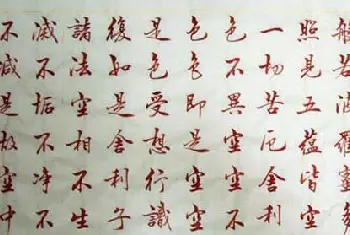 般若波羅蜜多
照見五蘊皆空
一切苦厄舍利
色不異空空不
色色即是空空
是色受想行識
復如是舍利子
諸法空相不生
滅不垢不淨不
不減是故空中